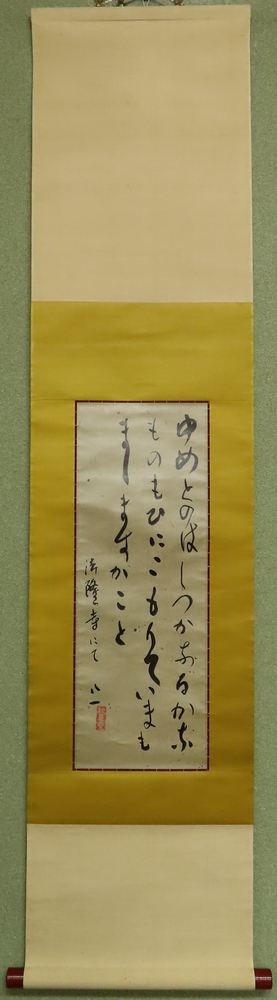 ゆめとのはしつかなるかな
ものもひにこもりていまも
ましますかこと
法隆寺にて 八一